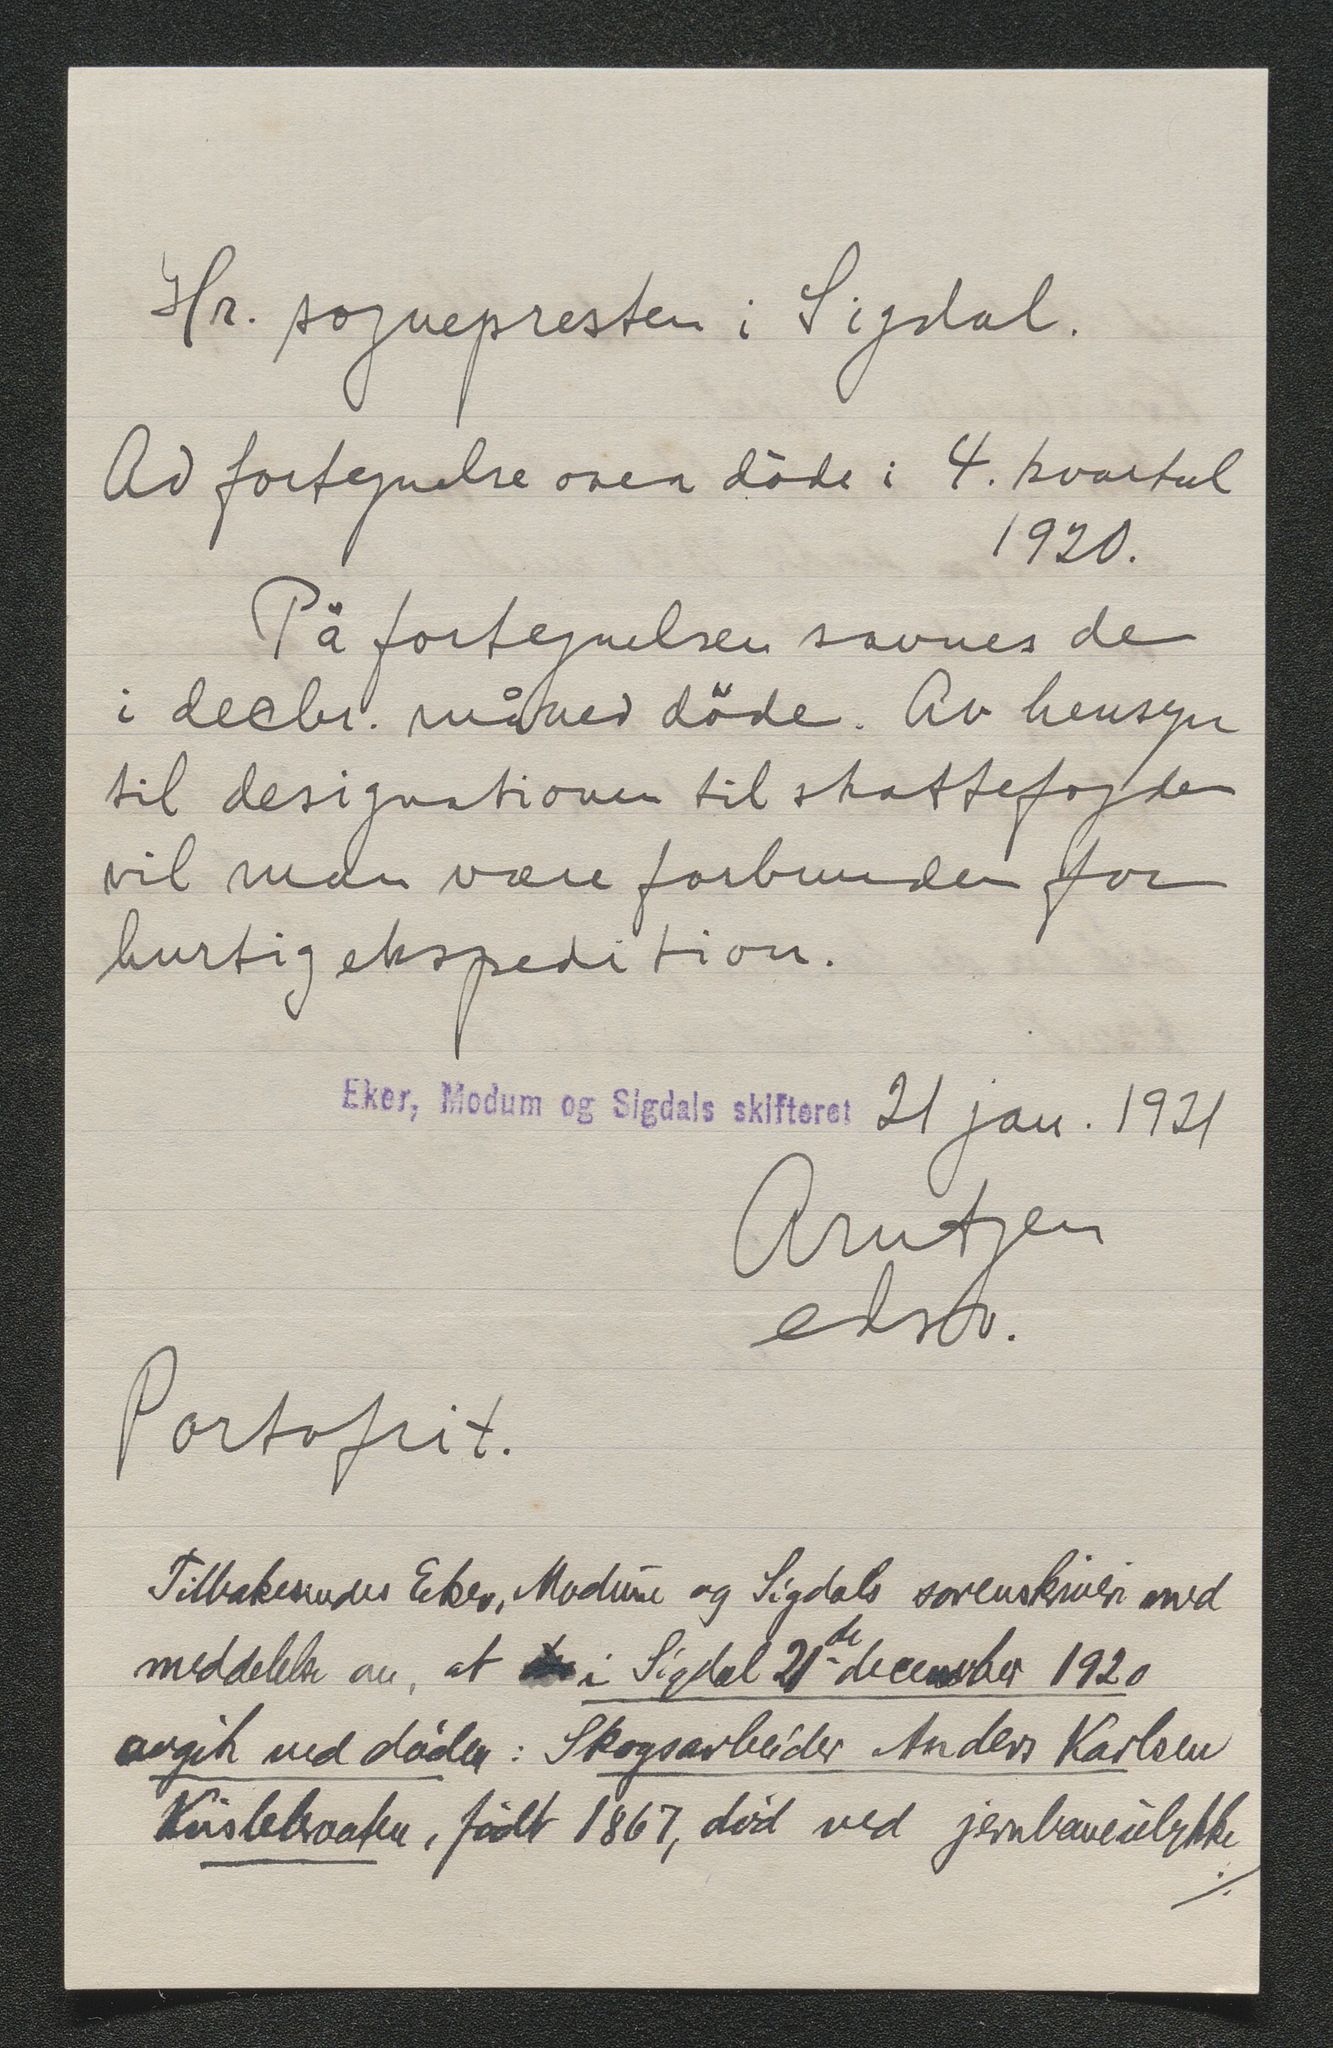 Hr. sognepresten i Sigdal.
Ad fortegnelse over döde i 4. kvartal
1920.
På fortegnelsen savnes de
i decbr. måned döde. Av hensyn
til designationen til skattefogden
vil man være forbunden for
hurtig ekspedition.
Eker, Modum og Sigdals skifteret 21 jan. 1921
Arntzen
edsv.
Portofrit.
Tilbakesendes Eker, Modum og Sigdals sorenskriveri med
meddelelse om, at i Sigdal 21de december 1920
avgik ved döden: Skogsarbeider Anders Karlsen
født 1867, død ved jernbaneulykke
./.